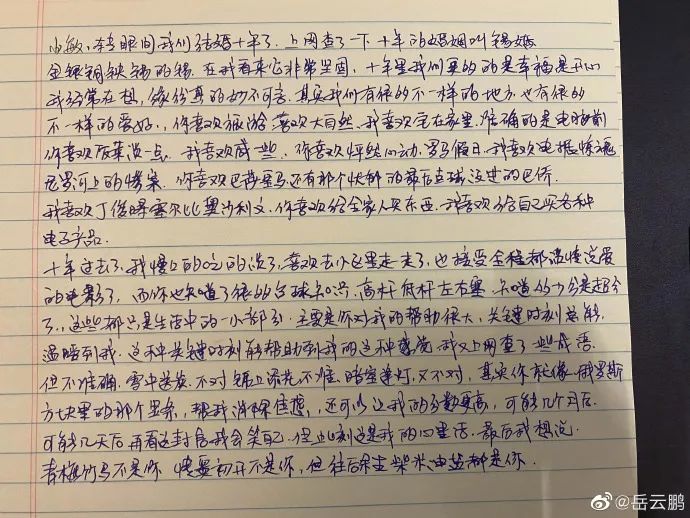 小敏，转眼间我们结婚十年了，上网查了一下十年的婚姻叫锡婚
金银铜铁锡的锡。在我看来它非常坚固，十年里我们更多的是幸福是开心
我经常在想，缘份真的妙不可言，其实我们有很多不一样的地方，也有很多
不一样的爱好，你喜欢 喜欢大自然，我喜欢宅在家里，准确的是电脑前
你喜欢饭菜淡一点，我喜欢咸一些，你喜欢怦然心动、罗马假日，我喜欢电锯惊魂
尼罗河上的惨案，你喜欢巴萨皇马还有那个 的最后点球没进的巴乔
我喜欢丁俊晖塞尔比奥沙利文，你喜欢给全家人买东西，我喜欢给自己买各种
电子产品.
十年过去了，我慢慢的吃的淡了，喜欢去小区里走一走了，也接受全程都谈情说爱
的电影了，而你也知道了很多台球知识，高杆低杆左右塞，知道的 是超分
了，这些都只是生活中的一小部分，主要是你对我的帮助很大，关键时刻总能
温暖到我，这种关键时刻能帮助到我的这种感觉，我又上网查了一些成语
但不准确，雪中送炭，不对，锦上添花不准，暗室逢灯，又不对，其实你就像俄罗斯
方块里的那个竖条，帮我消除危险，还可以让我的分数更高，可能几个月后
可能几天后再看这封信我会笑自己，但此刻这是我的心里话，最后我想说
青梅竹马不是你，情窦初开不是你，但往后余生柴米油盐都是你.
@岳云鹏